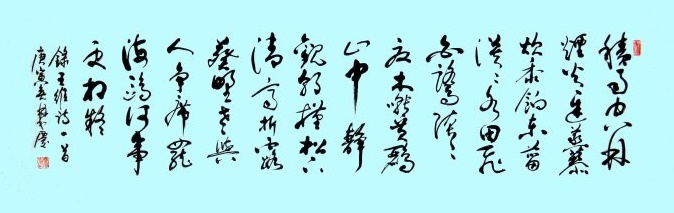 積雨空林
煙火遲蒸藜
炊黍餉東菑
漠漠水田飛
白鷺陰陰
夏木囀黃鸝
山中靜
觀朝槿松下
清齋折露
葵野老與
人爭席罷
海鷗何事
更相疑
錄王維詩一首
庚寅